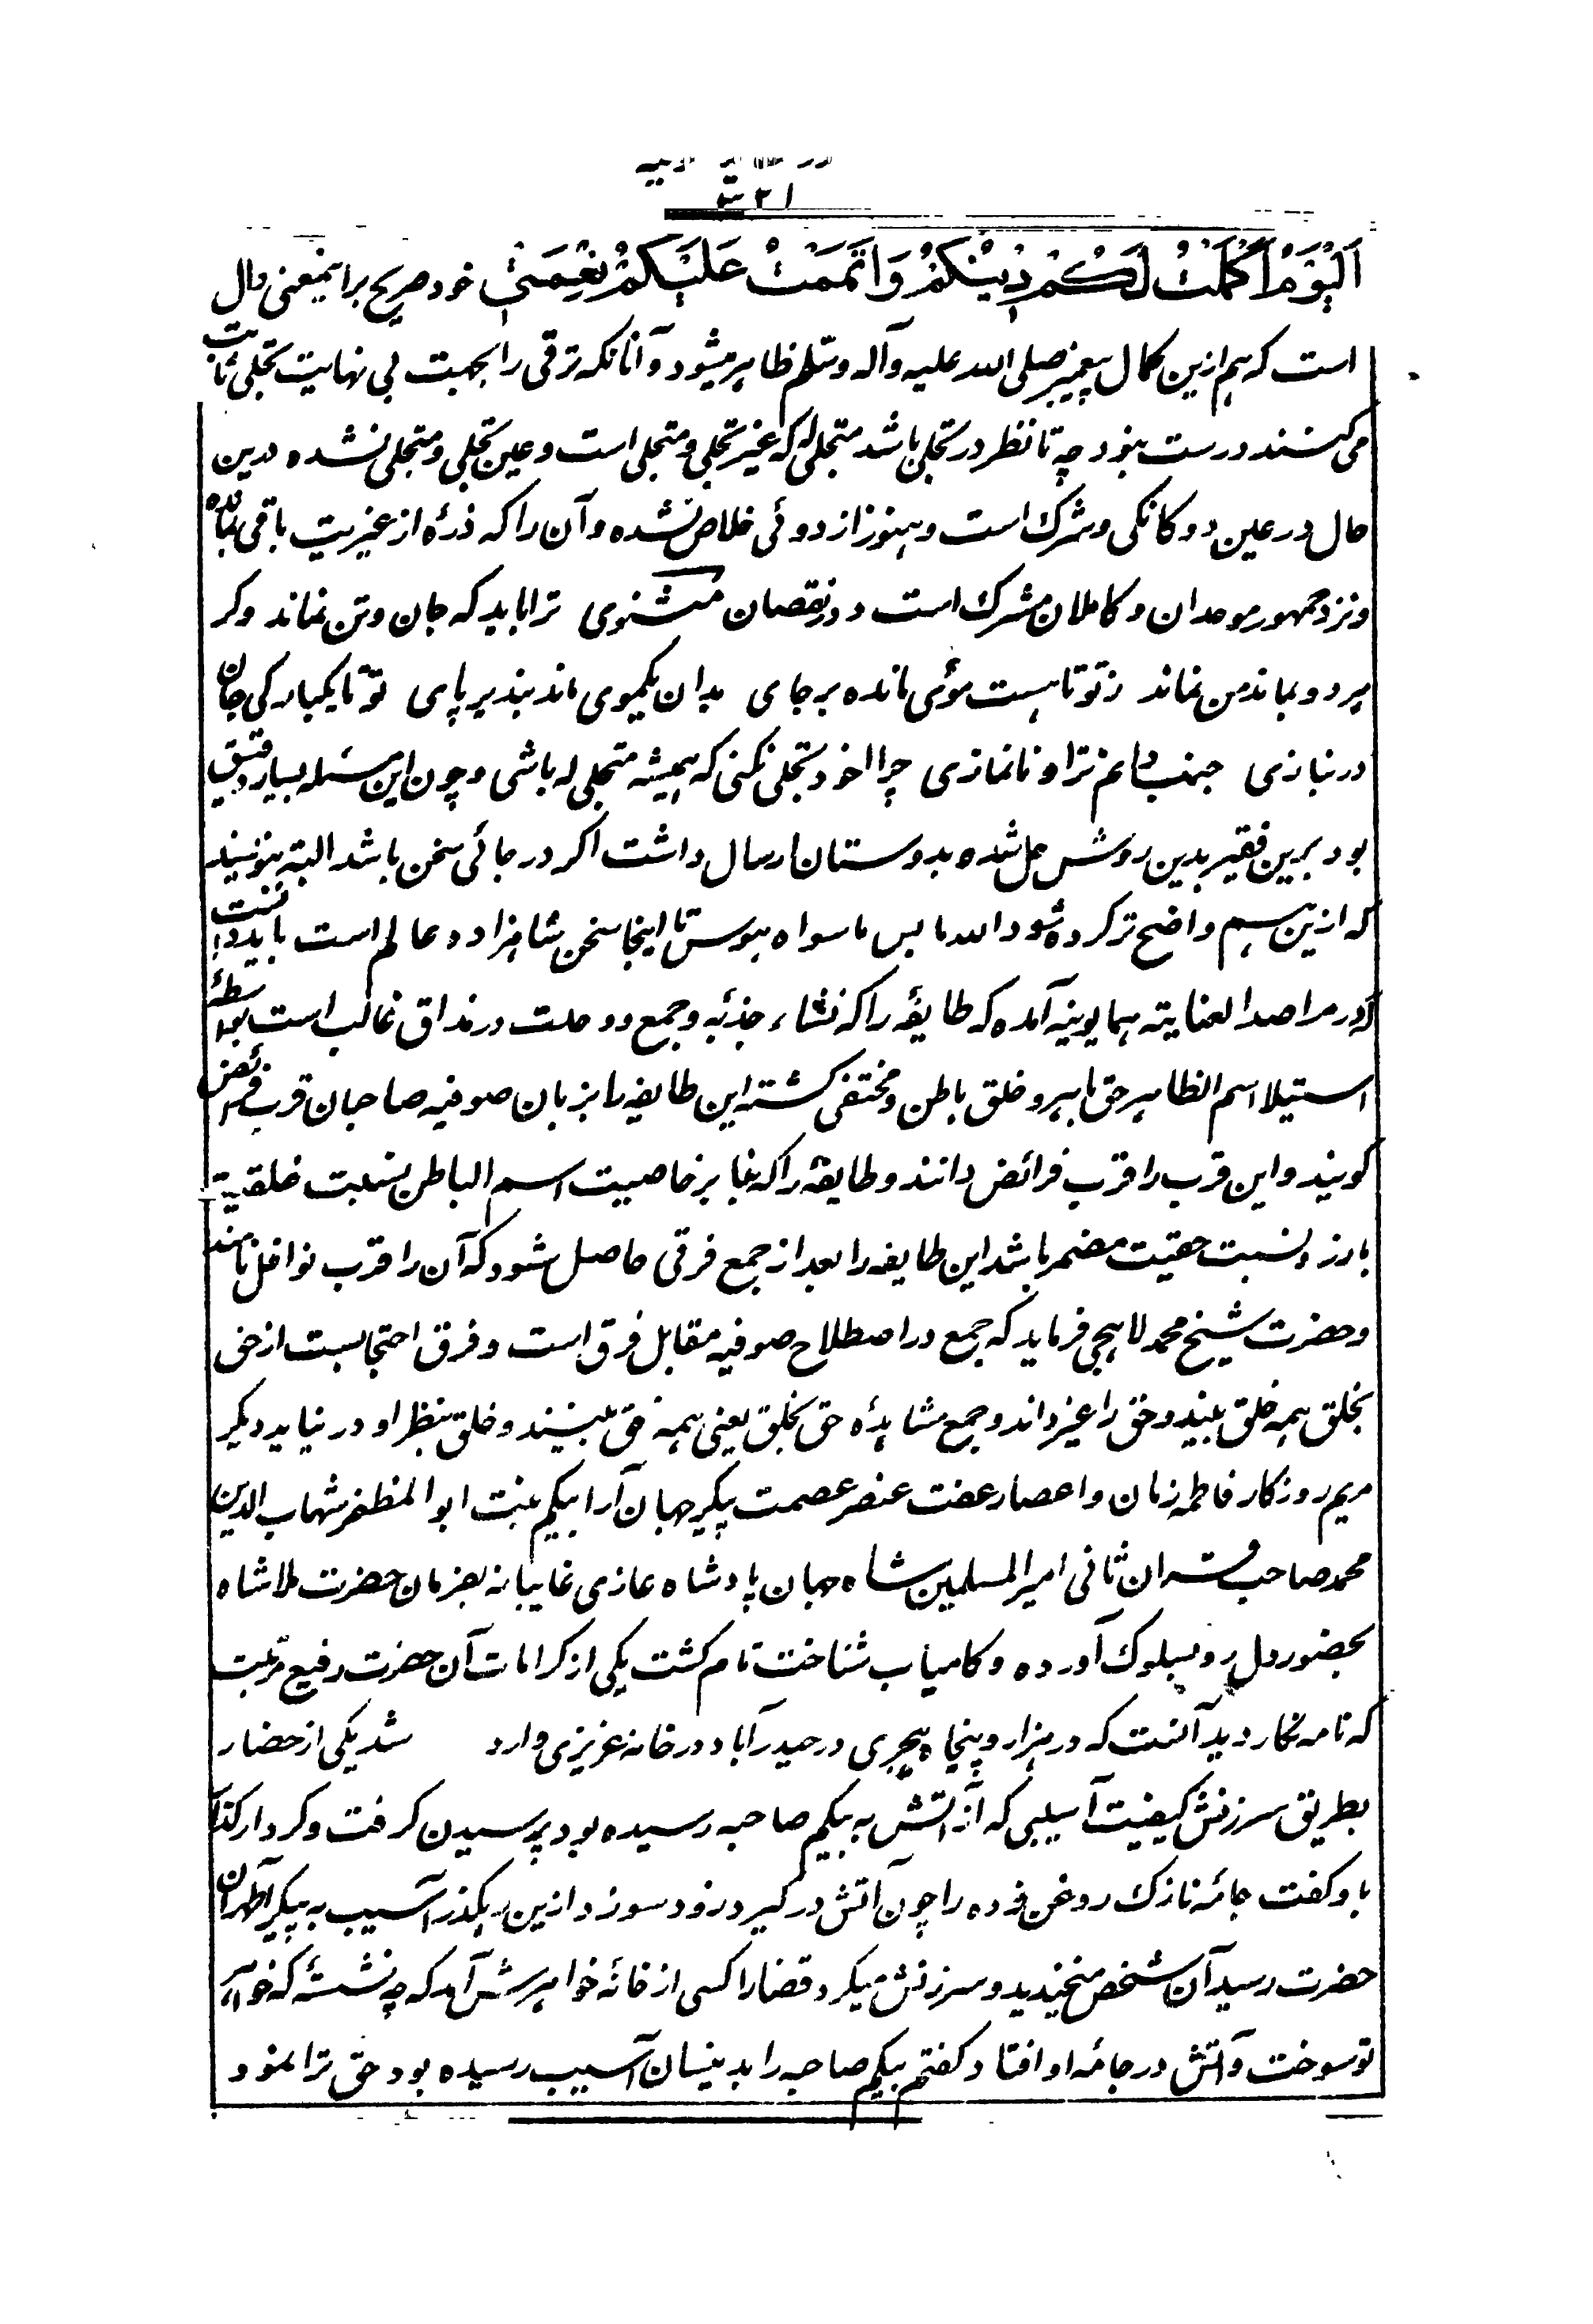 اَلْيَوْمَ اَكْمَلْتُ لَكُمْ دِيْنَكُمْ وَاَتْمَمْتُ عَلَيْكُمْ نِعْمَتِيْ خود صریح براینمعنی دال
است که هم ازین کمال پیغمبر صلی الله علیه وآله وسلم ظاهر میشود و آنانکه ترقی را بجهت بی نهایت تجلی ثابت
می کنند درست نبود چه تا نظر در تجلی باشد متجلی له که غیر تجلی و متجلی است و عین تجلی و متجلی نشده درین
حال در عین دوکانکی و شرک است و هنوز از دوئی خلاص نشده و آن را که ذرۀ از غیریت باقی مانده
و نزد جمهور موحدان و کاملان مشرک است و در نقصان مثنوی ترا باید که جان و تن نماند وکر
هر دو بماند من نماند ز تو تا هست موئی مانده بر جای بدان یکموی ماند بند بر پای تو تا یکبارکی جان
در نبازی جنب دانم ترا و نانمازی چرا خود تجلی نکنی که همیشه متجلی له باشی و چون این مسئله بسیار دقیق
بود برین فقیر بدین روش حل شده بدوستان ارسال داشت اکر در جائی سخن باشد البته بنویسند
که ازین هم واضح تر کرده شود الله ما بس ماسواه هوس تا اینجا سخن شاهزاده عالم است باید دانست
که در مراصد العنایته همایونیه آمده که طایفۀ را که نشاء جذبه و جمع و وحدت در مذاق غالب است بواسطۀ
استیلا اسم الظاهر حق ظاهر و خلق باطن و مختفی کشته این طایفه را بزبان صوفیه صاحبان قرب فرائض
کویند و این قرب را قرب فرائض دانند و طایفۀ را که بنا بر خاصیت اسم الباطن نسبت خلقیت
بارز و نسبت حقیت مضمر باشد این طایفه را بعد از جمع فرقی حاصل شود که آن را قرب نوافل نامند
و حضرت شیخ محمد لاهیجی فرماید که جمع در اصطلاح صوفیه مقابل فرق است و فرق احتجابست از حق
بخلق همه خلق بیند و حق را غیر داند و جمع مشاهدۀ حق بخلق یعنی همه حق بیند و خلق بنظر او در نیاید دیکر
مریم روزکار فاطمه زمان و اعصار عفت عنصر عصمت پیکر جهان آرا بیکم بنت ابوالمظفر شهاب الدین
محمد صاحب قران ثانی امیرالمسلمین شاه جهان پادشاه غازی غایبانه بفرمان حضرت ملا شاه
بحضور دل رو بسلوک آورده و کامیاب شناخت تام کشت یکی از کرامات آن حضرت رفیع مرتبت
که نامه نکار دید آنست که در هزار و پنجاه هجری در حیدرآباد در خانه عزیزی وارد شد یکی از حضار
بطریق سرزنش کیفیت آسیبی که از آتش به بیکم صاحبه رسیده بود پرسیدن کرفت و کردار
باو کفت جامۀ نازک روغن زده را چون آتش درکیرد زود سوزد ازین رهکذر آسیب به پیکر اطهر آن
حضرت رسید آن شخص میخندید و سرزنش میکرد قضا را کسی از خانۀ خواهرش آمد که چه نشستۀ که خواهر
تو سوخت و آتش در جامه او افتاد کفتم بیکم صاحبه را بدینسان آسیب رسیده بود حق ترا نمود